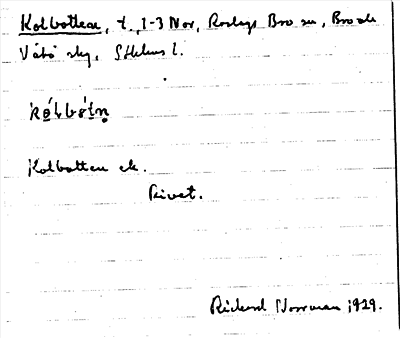 Kolbotten, t., 1-3 Nor, Roslags Bro sn, Bro och
Vätö skg, Sthlms l.
kò̩lbòtn̥
Kolbotten ek.
Rivet.
Rickard Norrman 1929.